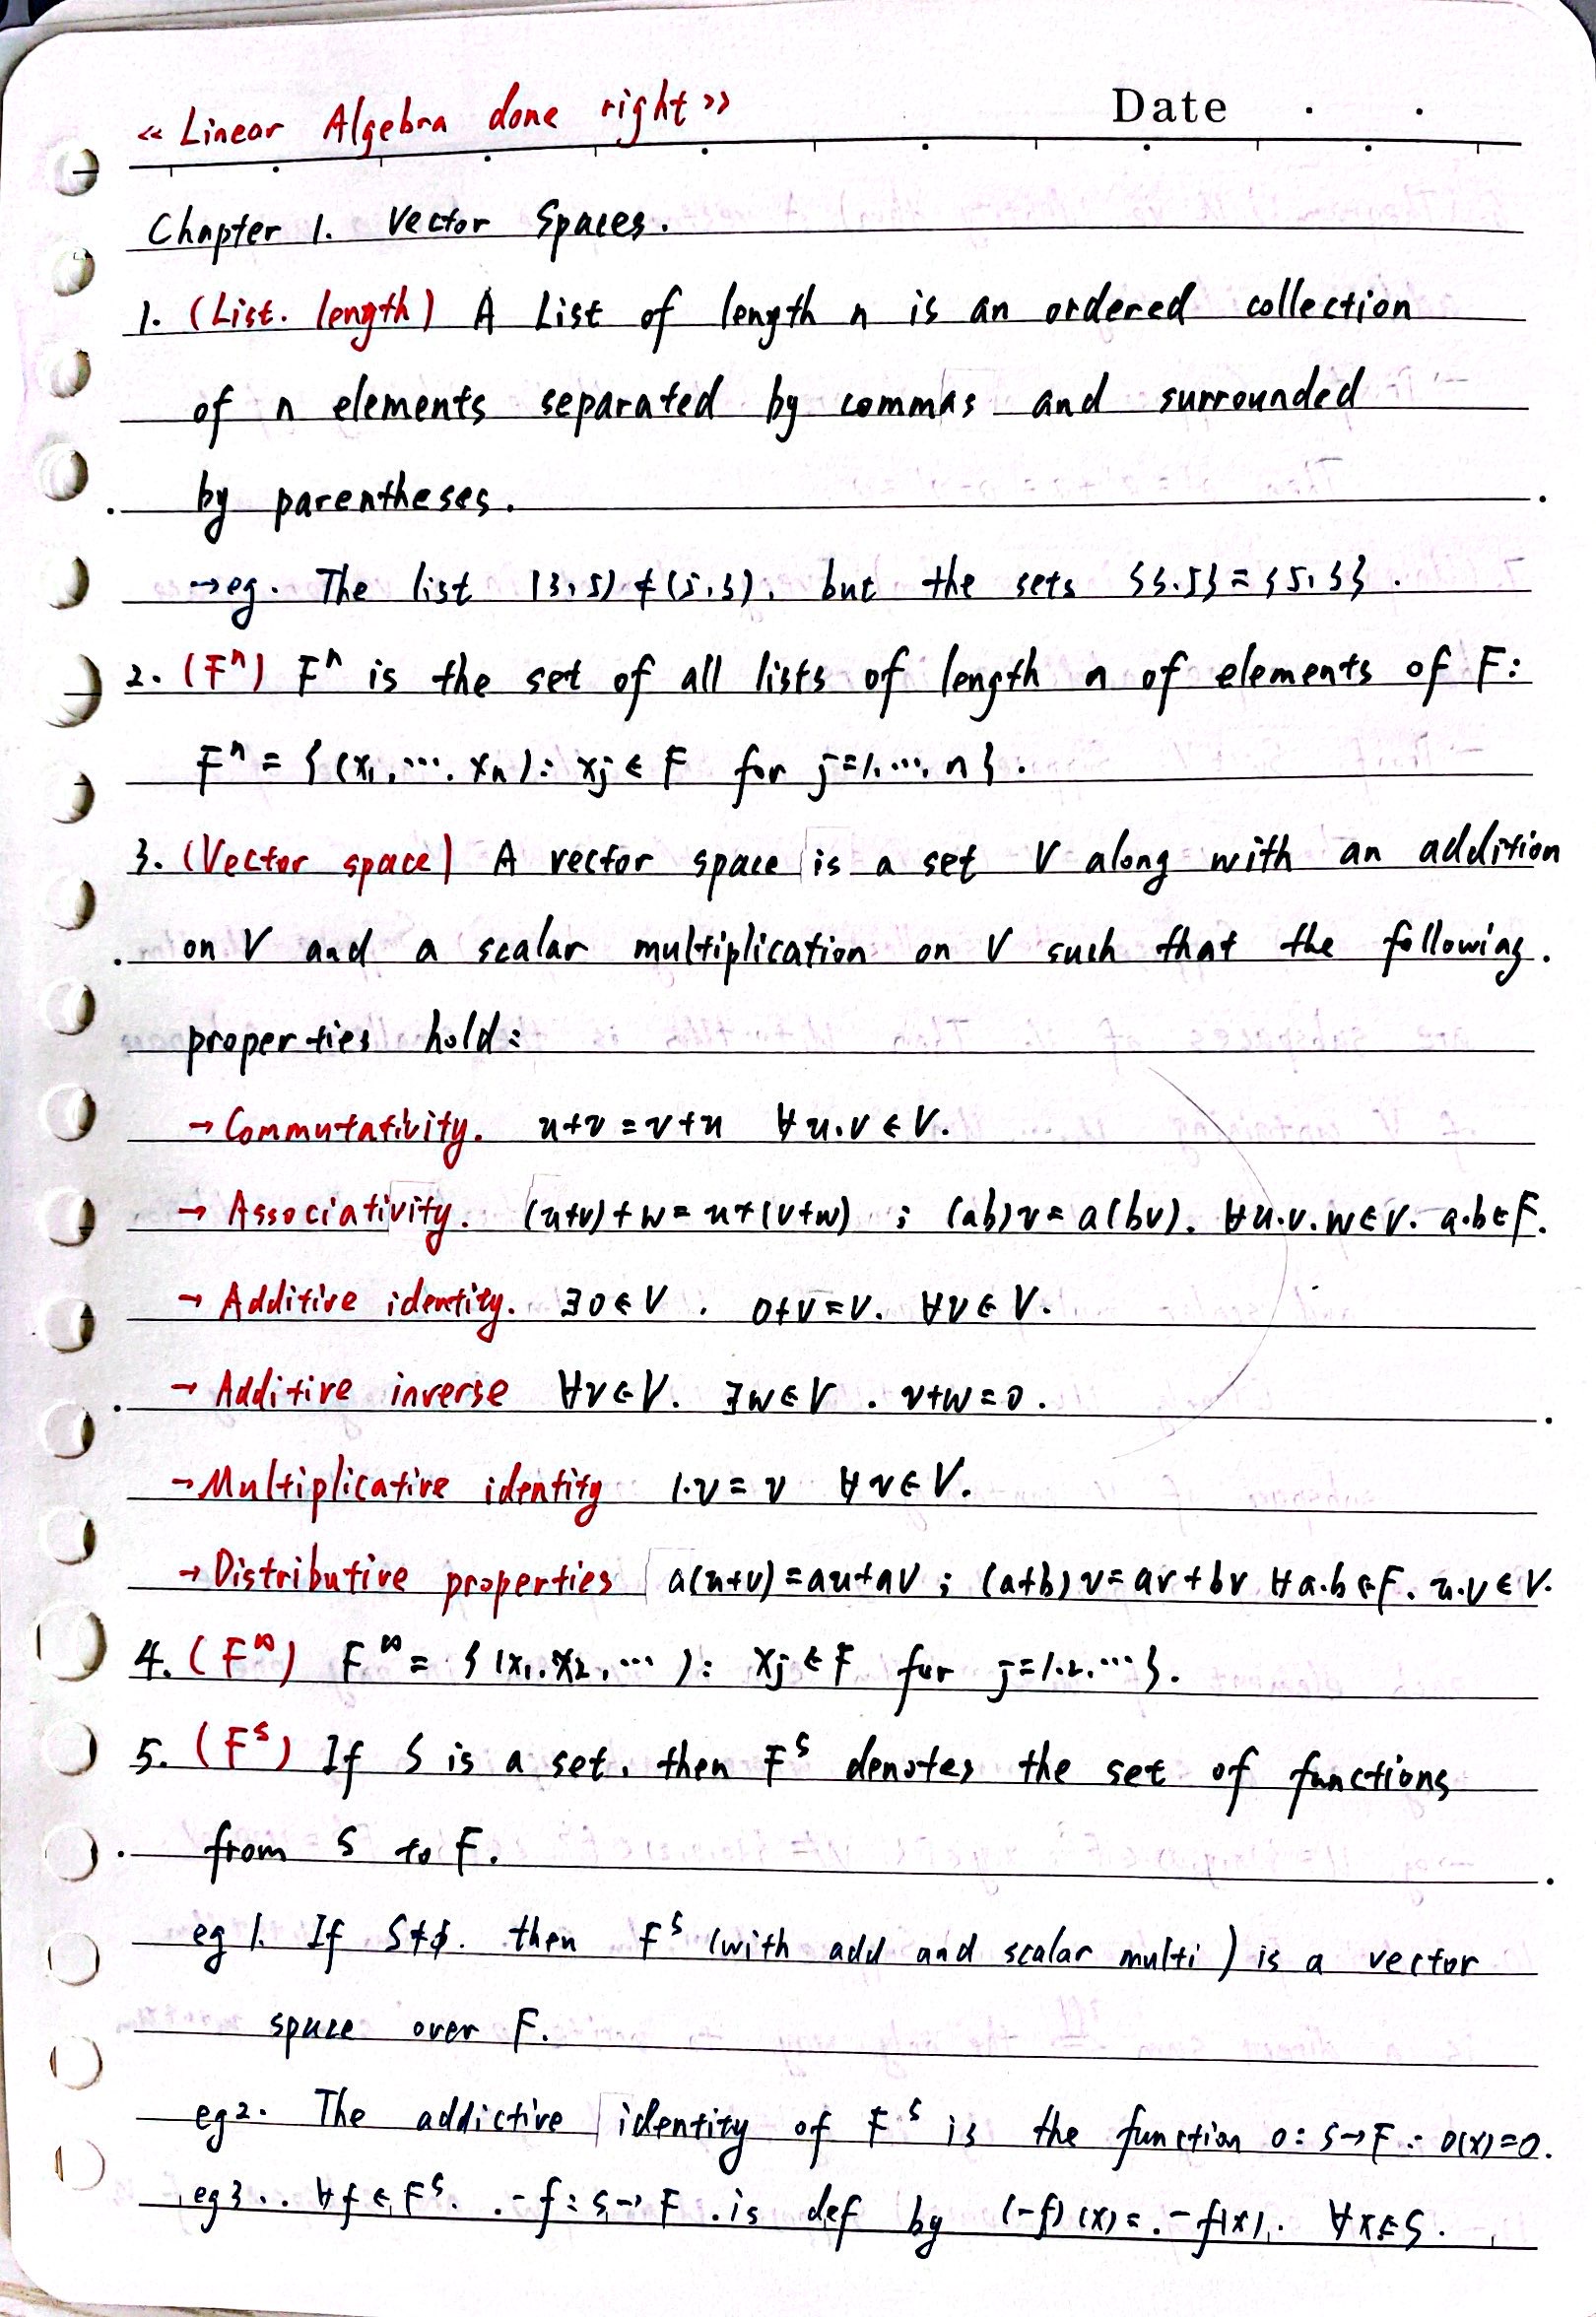 «Linear Algebra done right»
Date . .
Chapter 1. Vector Spaces.
1. (List. length) A List of length n is an ordered collection
of n elements separated by commas and surrounded
by parentheses.
→eg. The list (3,5) ≠ (5,3). but the sets {3.5} = {5,3}.
2. (Fⁿ) Fⁿ is the set of all lists of length n of elements of F:
Fⁿ = {(x₁,…. xₙ): xj ∈ F for j=1.…, n}.
3. (Vector space) A vector space is a set V along with an addition
on V and a scalar multiplication on V such that the following.
properties hold:
→ Commutativity. u+v = v+u ∀u.v ∈ V.
→ Associativity. (u+v)+w = u+(v+w) ; (ab)v = a(bv). ∀u.v.w∈V. a.b∈F.
→ Additive identity. ∃0∈V . 0+v=v. ∀v∈V.
→ Additive inverse ∀v∈V. ∃w∈V . v+w=0.
→ Multiplicative identity 1·v = v ∀v∈V.
→ Distributive properties a(u+v)=au+av ; (a+b)v=av+bv ∀a.b∈F. u.v∈V.
4. (F^∞) F^∞ = {(x₁.x₂,…): xj ∈ F for j=1.2.…}.
5. (F^S) If S is a set, then F^S denotes the set of functions
from S to F.
eg 1. If S≠∅. then F^S (with add and scalar multi) is a vector
space over F.
eg2. The addictive identity of F^S is the function 0: S→F: 0(x)=0.
eg3.. ∀f∈F^S. -f: S→F is def by (-f)(x) = -f(x). ∀x∈S.